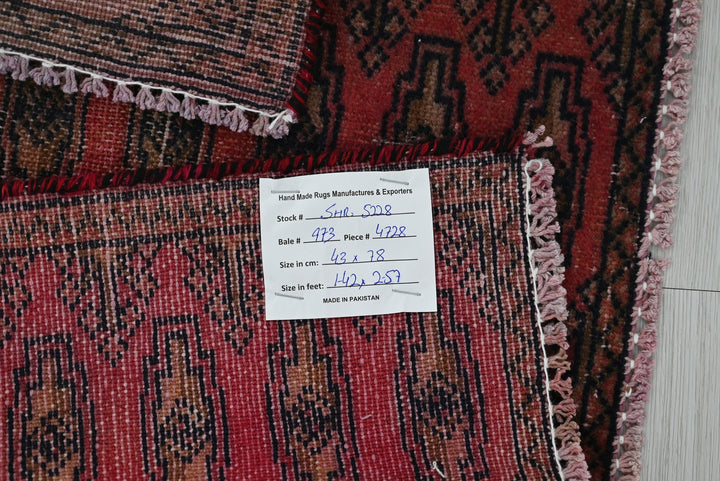 Hand Made Rugs Manufactures & Exporters
Stock # SHR. 5228
Bale # 973 Piece # 4728
Size in cm: 43 x 78
Size in feet: 1.42 x 2.57
MADE IN PAKISTAN